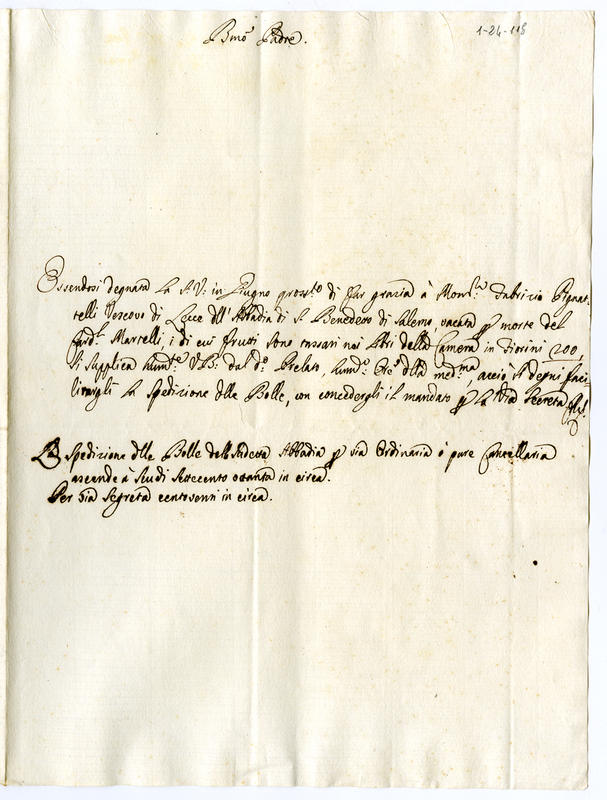 Bmo Padre.
1-24-118
Essendosi degnata la S. V: in Giugno pross:to di far grazia à Mons:re Fabrizio Pignat-
telli Vescovo di Lecce dell'Abbadia di S. Benedetto di Salerno, vacata p morte del
Card:l Martelli, i di cui frutti sono tassati nei libri della Camera in Fiorini 200,
Si supplica hum:te V. B: dal d:o Prelato, hum:o Ore dlla med:ma, acciò si degni faci-
litargli la spedizione dlle Bolle, con concedergli il mandato p la Via Secreta
La Spedizione dlle Bolle dell'sudetta Abbadia p via Ordinaria ò pure Cancellaria
ascende à Scudi Settecento ottanta in circa.
Per via segreta in circa.